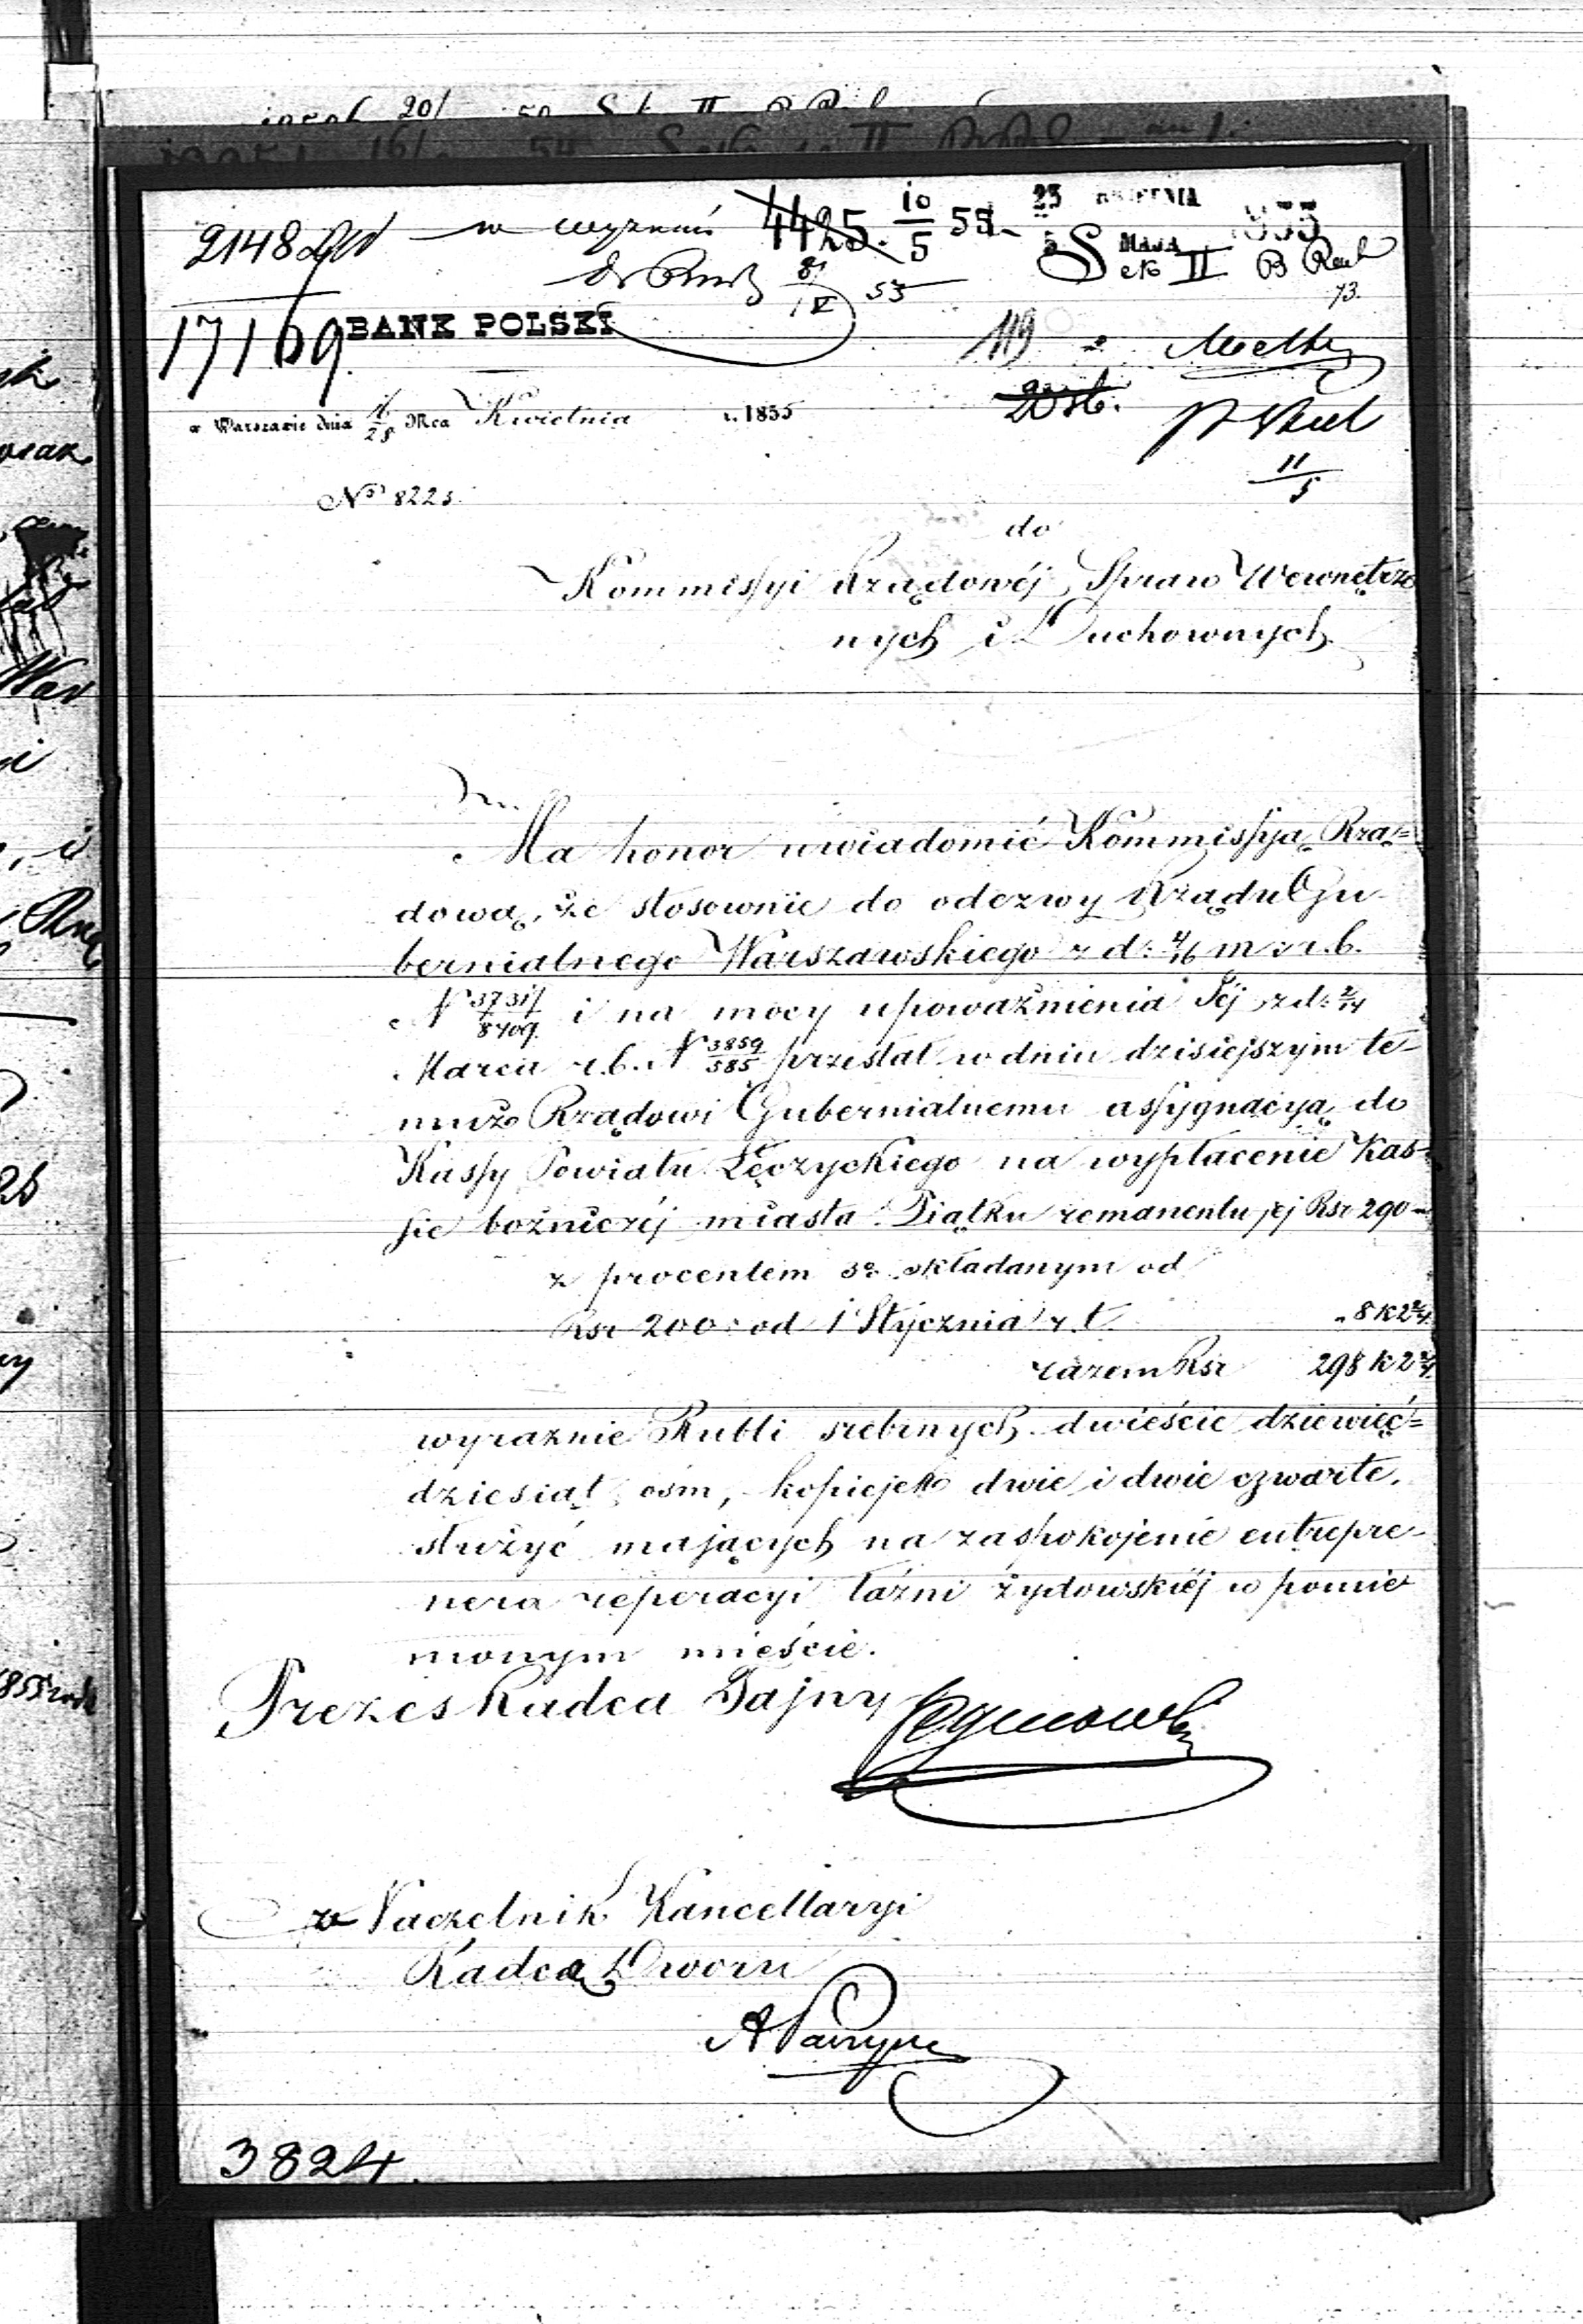 2148
17169
4425. 10/5 55. 23 KWIETNIA 1855
5 MAJA
Sek II B
73.
BANK POLSKI
119
w Warszawie dnia 16/28 Mca Kwietnia r. 1855
11/5
No 8225
do
Kommissyi Rządowéj Spraw Wewnętrz
nych i Duchownych
Ma honor uwiadomić Kommissyą Rzą=
dową, że stosownie do odezwy Rządu Gu-
bernialnego Warszawskiego z d: 4/16 m i r.b.
N 37317/8409 i na mocy upoważnienia Jéj z d: 2/14
Marca r.b. N 3859/585 przesłał w dniu dzisiejszym te-
muż Rządowi Gubernialnemu assygnacyą do
Kassy Powiatu Łęczyckiego na wypłacenie Kas-
sie bożniczéj miasta Piątku remanentu jej Rsr 290
z procentem składanym od
Rsr 200 od 1 Stycznia r. t. „ 8 k 2 2/4
razem Rsr 298 k 2 2/4
wyraźnie Rubli srebrnych dwieście dziewięć=
dziesiąt ośm, kopiejek dwie i dwie czwarte,
służyć mających na zaspokojenie entrepre-
nera reperacyi łaźni żydowskiéj w pomie
nionym mieście.
Prezes Radca Tajny
z Naczelnik Kancellaryi
Radca Dworu
3824.